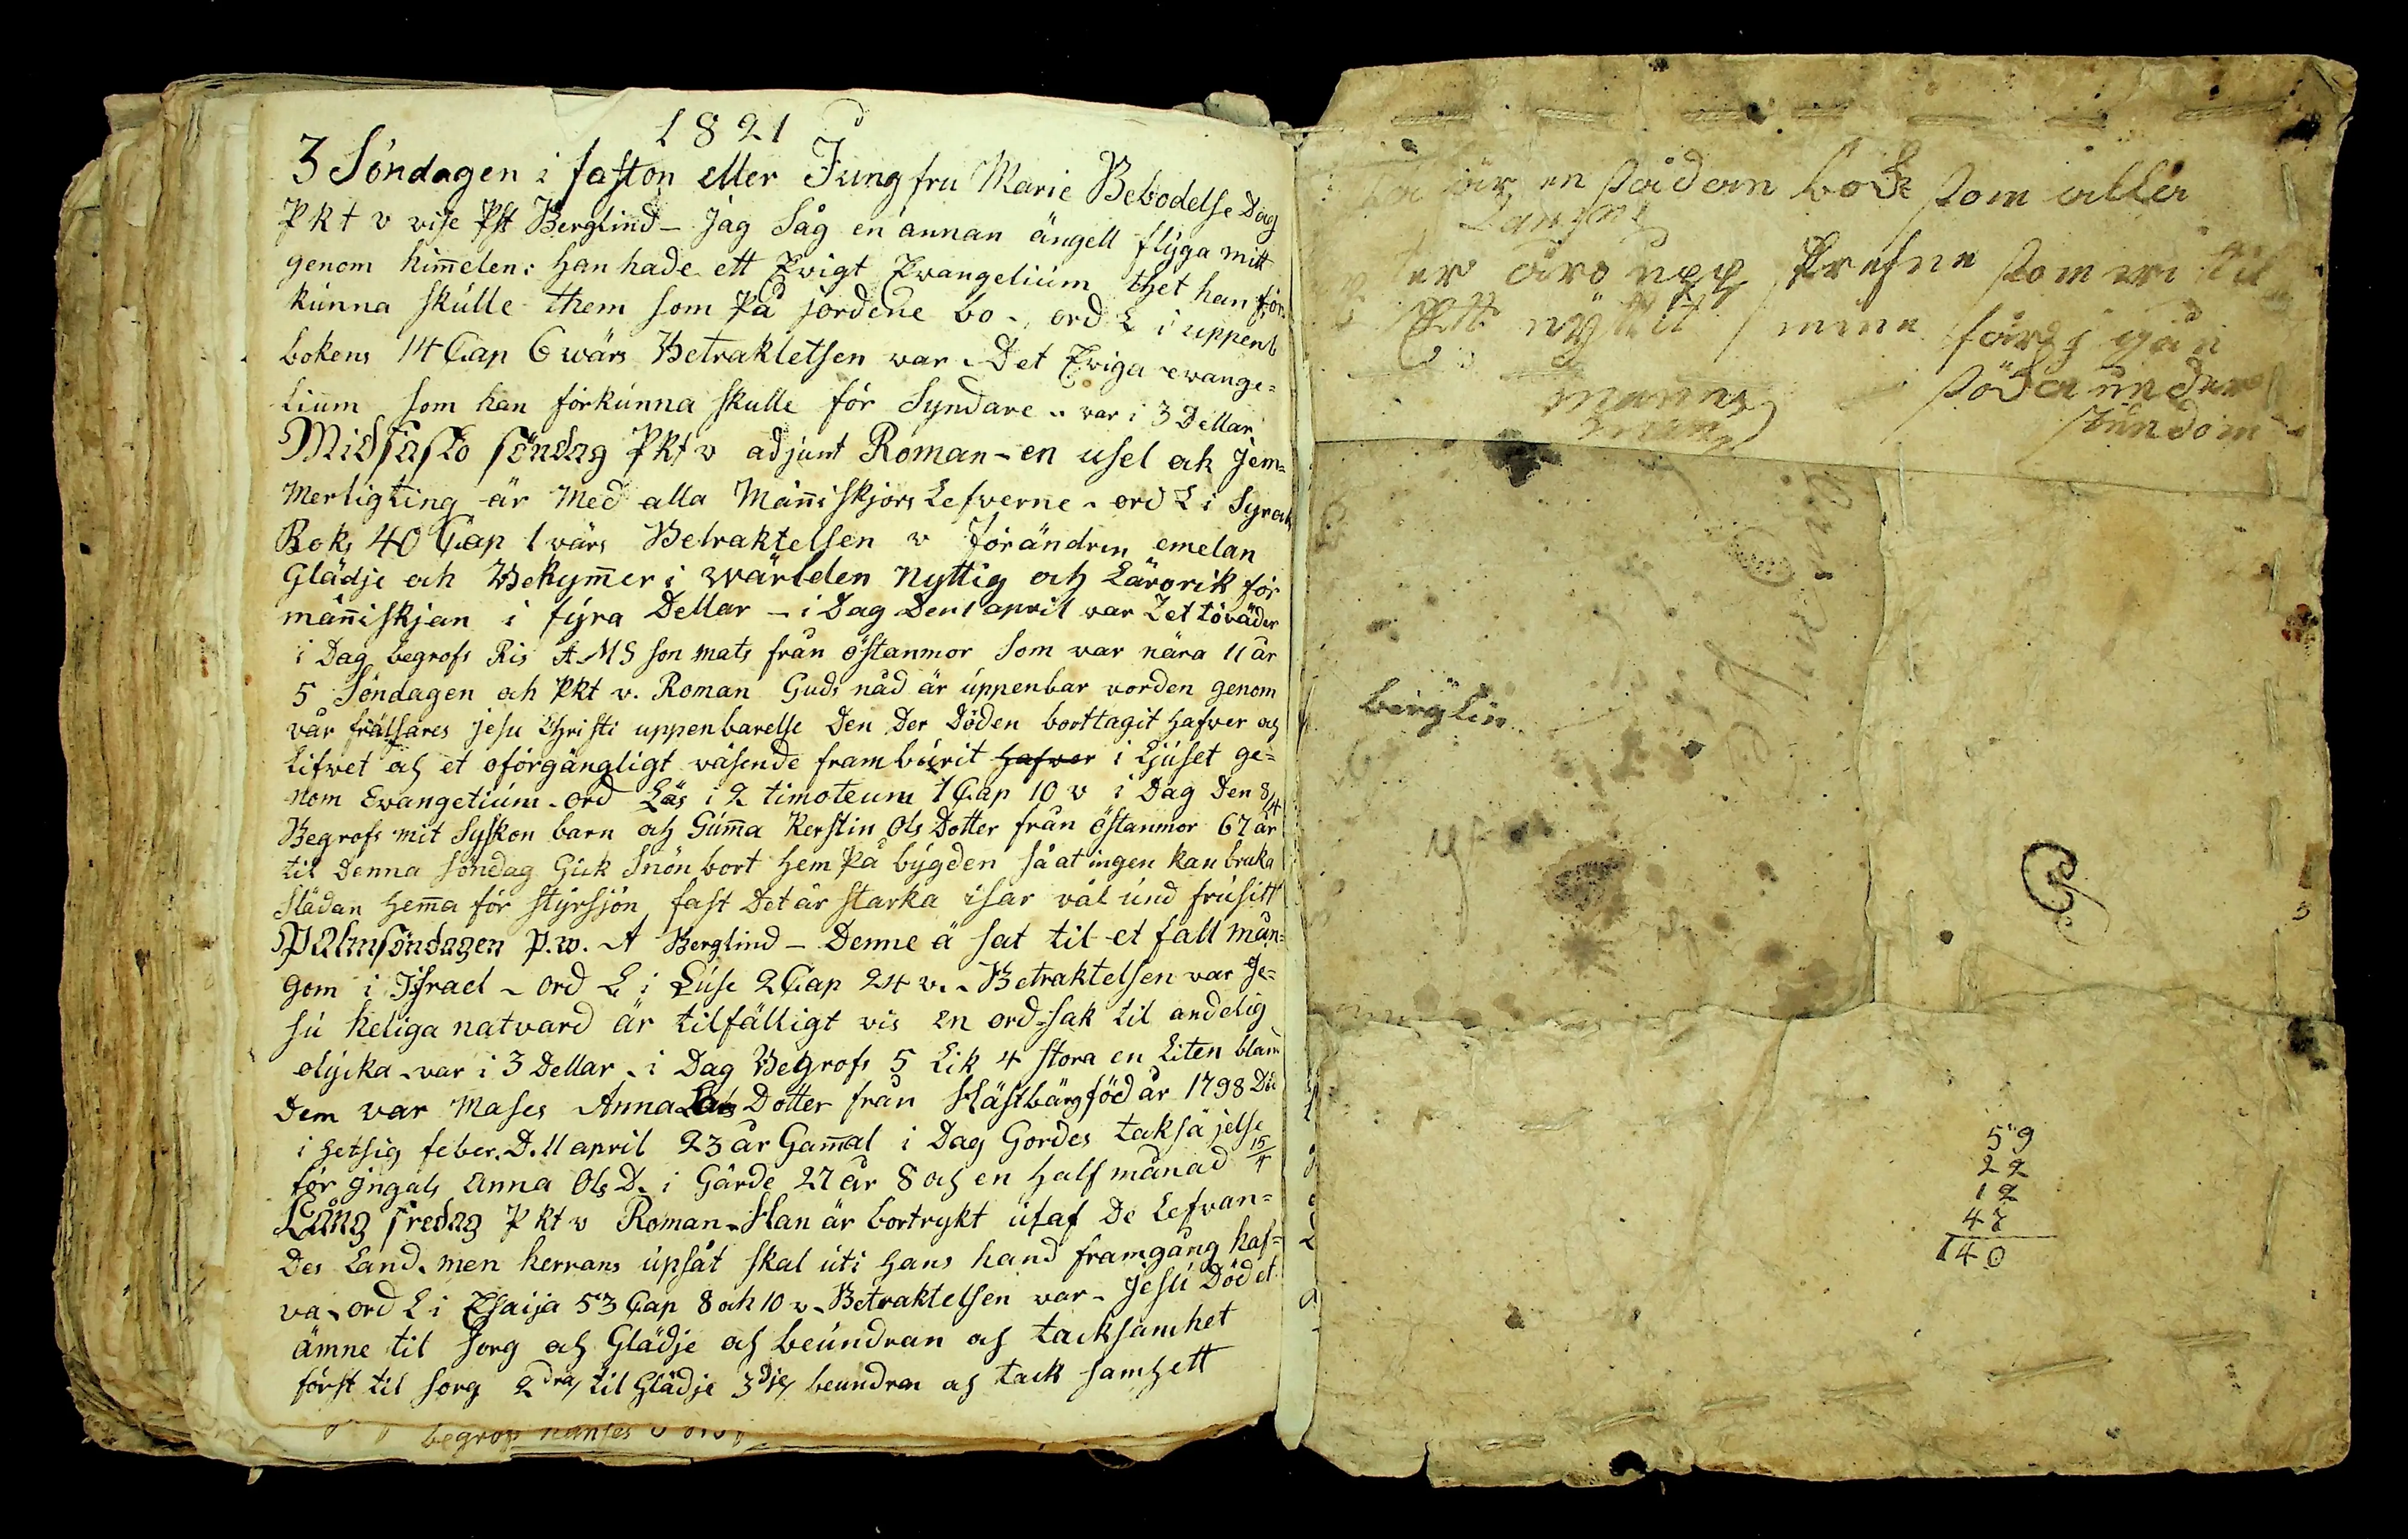 1821
3 Söndagen i faston eller Jungfru Marie Bebodelse Dag
Pkt v vise Pst Berglind – jag Såg en annan ängell flÿga mitt
genom him̅elen: han hade ett Evigt Evangelium thet han för=
kunna skulle them som På jordene bo – ord L i uppenb
bokens 14 Cap 6 wärs Betrakletsen war – Det Eviga evange=
lium som han förkunna skulle för Syndare – var i 3 Dellar
Midfasto söndag Pkt v adjunt Roman – en usel ok Jem=
merligting är Med alla Män̅iskjors Lefverne – ord L i Syrach
Boks 40 Cap 1 wärs Betraktelsen v förändrin emelan
Glädje och Bekym̅er i wärlden nyttig och Lärorik för
män̅iskjan i fÿra Dellar – i Dag Den 1 april war Let töväder
i Dag begrofs Ris A M S son mats från östanmor Som war nära 11 år
5 Söndagen och Pkt v. Roman Guds nåd är uppenbar vorden genom
vår frälsares jesu Christi uppenbarelse Den Der Döden borttagit hafver och
Lifvet och et oförgängligt väsende framburit hafver i Ljuset ge=
nom Evangetium – ord Läs i 2 timoteum 1 Cap 10 v i Dag Den 8/4
Begrofs mit Syskon barn och Gum̅a Kerstin Ols Dotter från östanmor 67 år
til Denna söndag Gick Snön bort hem På bÿgden så at ingen kan bruka
slädan hem̅a för stÿrsjön fast Det är starka isar väl und frusitt
Palmsöndagen P.w. A Berglind – Denne ä sat til et fall mån=
gom i Israel – ord L i Luse 2 Cap 24 v. – Betraktelsen var Je=
su heliga natvard är tilfälligt vis en ord-sak til andelig
olÿcka – var i 3 Dellar – i Dag Begrofs 5 Lik 4 stora en Liten bland
Dem var Mases Anna Dotter från Hästbärg föd år 1798 Dö
i hetsig feber. D. 11 april 23 år Gam̅al i Dag Gordes taksäjelse
för jngals Anna Ols D. i Gärde 27 år 8 och en half månad 15/4
Lång fredag Pkt v Roman – Han är bortrykt utaf De Lefvan=
Des Land. men herrans upsåt skal uti hans hand framgång haf=
va – ord L i Esaija 53 Cap 8 ok 10 v – Betraktelsen var – Jesu Död et
ämne til sorg och Glädje och beundran och tacksamhet
först til sorg 2dra/ til Glädje 3dje/ beundran och tack samhett
begrop hanses
är en sådan bok som alla
äro upp skrefne som vi til
Ett nÿttit
birglin
59
22
12
47
140